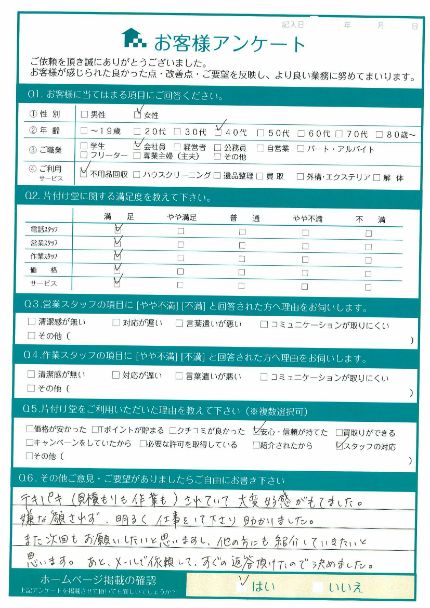 記入日　年　月　日
お客様アンケート
ご依頼を頂き誠にありがとうございました。
お客様が感じられた良かった点・改善点・ご要望を反映し、より良い業務に努めてまいります。
Q1. お客様に当てはまる項目にご回答ください。
①性別 □男性 ☑女性
②年齢 □～19歳 □20代 □30代 ☑40代 □50代 □60代 □70代 □80歳～
③ご職業 □学生 ☑会社員 □経営者 □公務員 □自営業 □パート・アルバイト
□フリーター □専業主婦（主夫） □その他
④ご利用サービス ☑不用品回収 □ハウスクリーニング □遺品整理 □買取 □外構・エクステリア □解体
Q2. 片付け堂に関する満足度を教えて下さい。
満足 やや満足 普通 やや不満 不満
電話スタッフ ☑ □ □ □ □
営業スタッフ ☑ □ □ □ □
作業スタッフ ☑ □ □ □ □
価格 ☑ □ □ □ □
サービス ☑ □ □ □ □
Q3. 営業スタッフの項目に [やや不満] [不満] と回答された方へ理由をお伺いします。
□清潔感が無い □対応が遅い □言葉遣いが悪い □コミュニケーションが取りにくい
□その他（ ）
Q4. 作業スタッフの項目に [やや不満] [不満] と回答された方へ理由をお伺いします。
□清潔感が無い □対応が遅い □言葉遣いが悪い □コミュニケーションが取りにくい
□その他（ ）
Q5. 片付け堂をご利用いただいた理由を教えて下さい（※複数選択可）
□価格が安かった □Tポイントが貯まる □クチコミが良かった ☑安心・信頼が持てた □買取りができる
□キャンペーンをしていたから □必要な許可を取得している □紹介されたから ☑スタッフの対応
□その他（ ）
Q6. その他ご意見・ご要望がありましたらご自由にお書き下さい
テキパキ（見積もりも作業も）されていて大変好感がもてました。
嫌な顔されず、明るく仕事をして下さり助かりました。
また次回もお願いしたいと思いますし、他の方にも紹介していきたいと
思います。あと、メールで依頼して、すぐの返答頂けたので決めました。
ホームページ掲載の確認 ☑はい □いいえ
上記アンケートを掲載させて頂いても宜しいでしょうか？